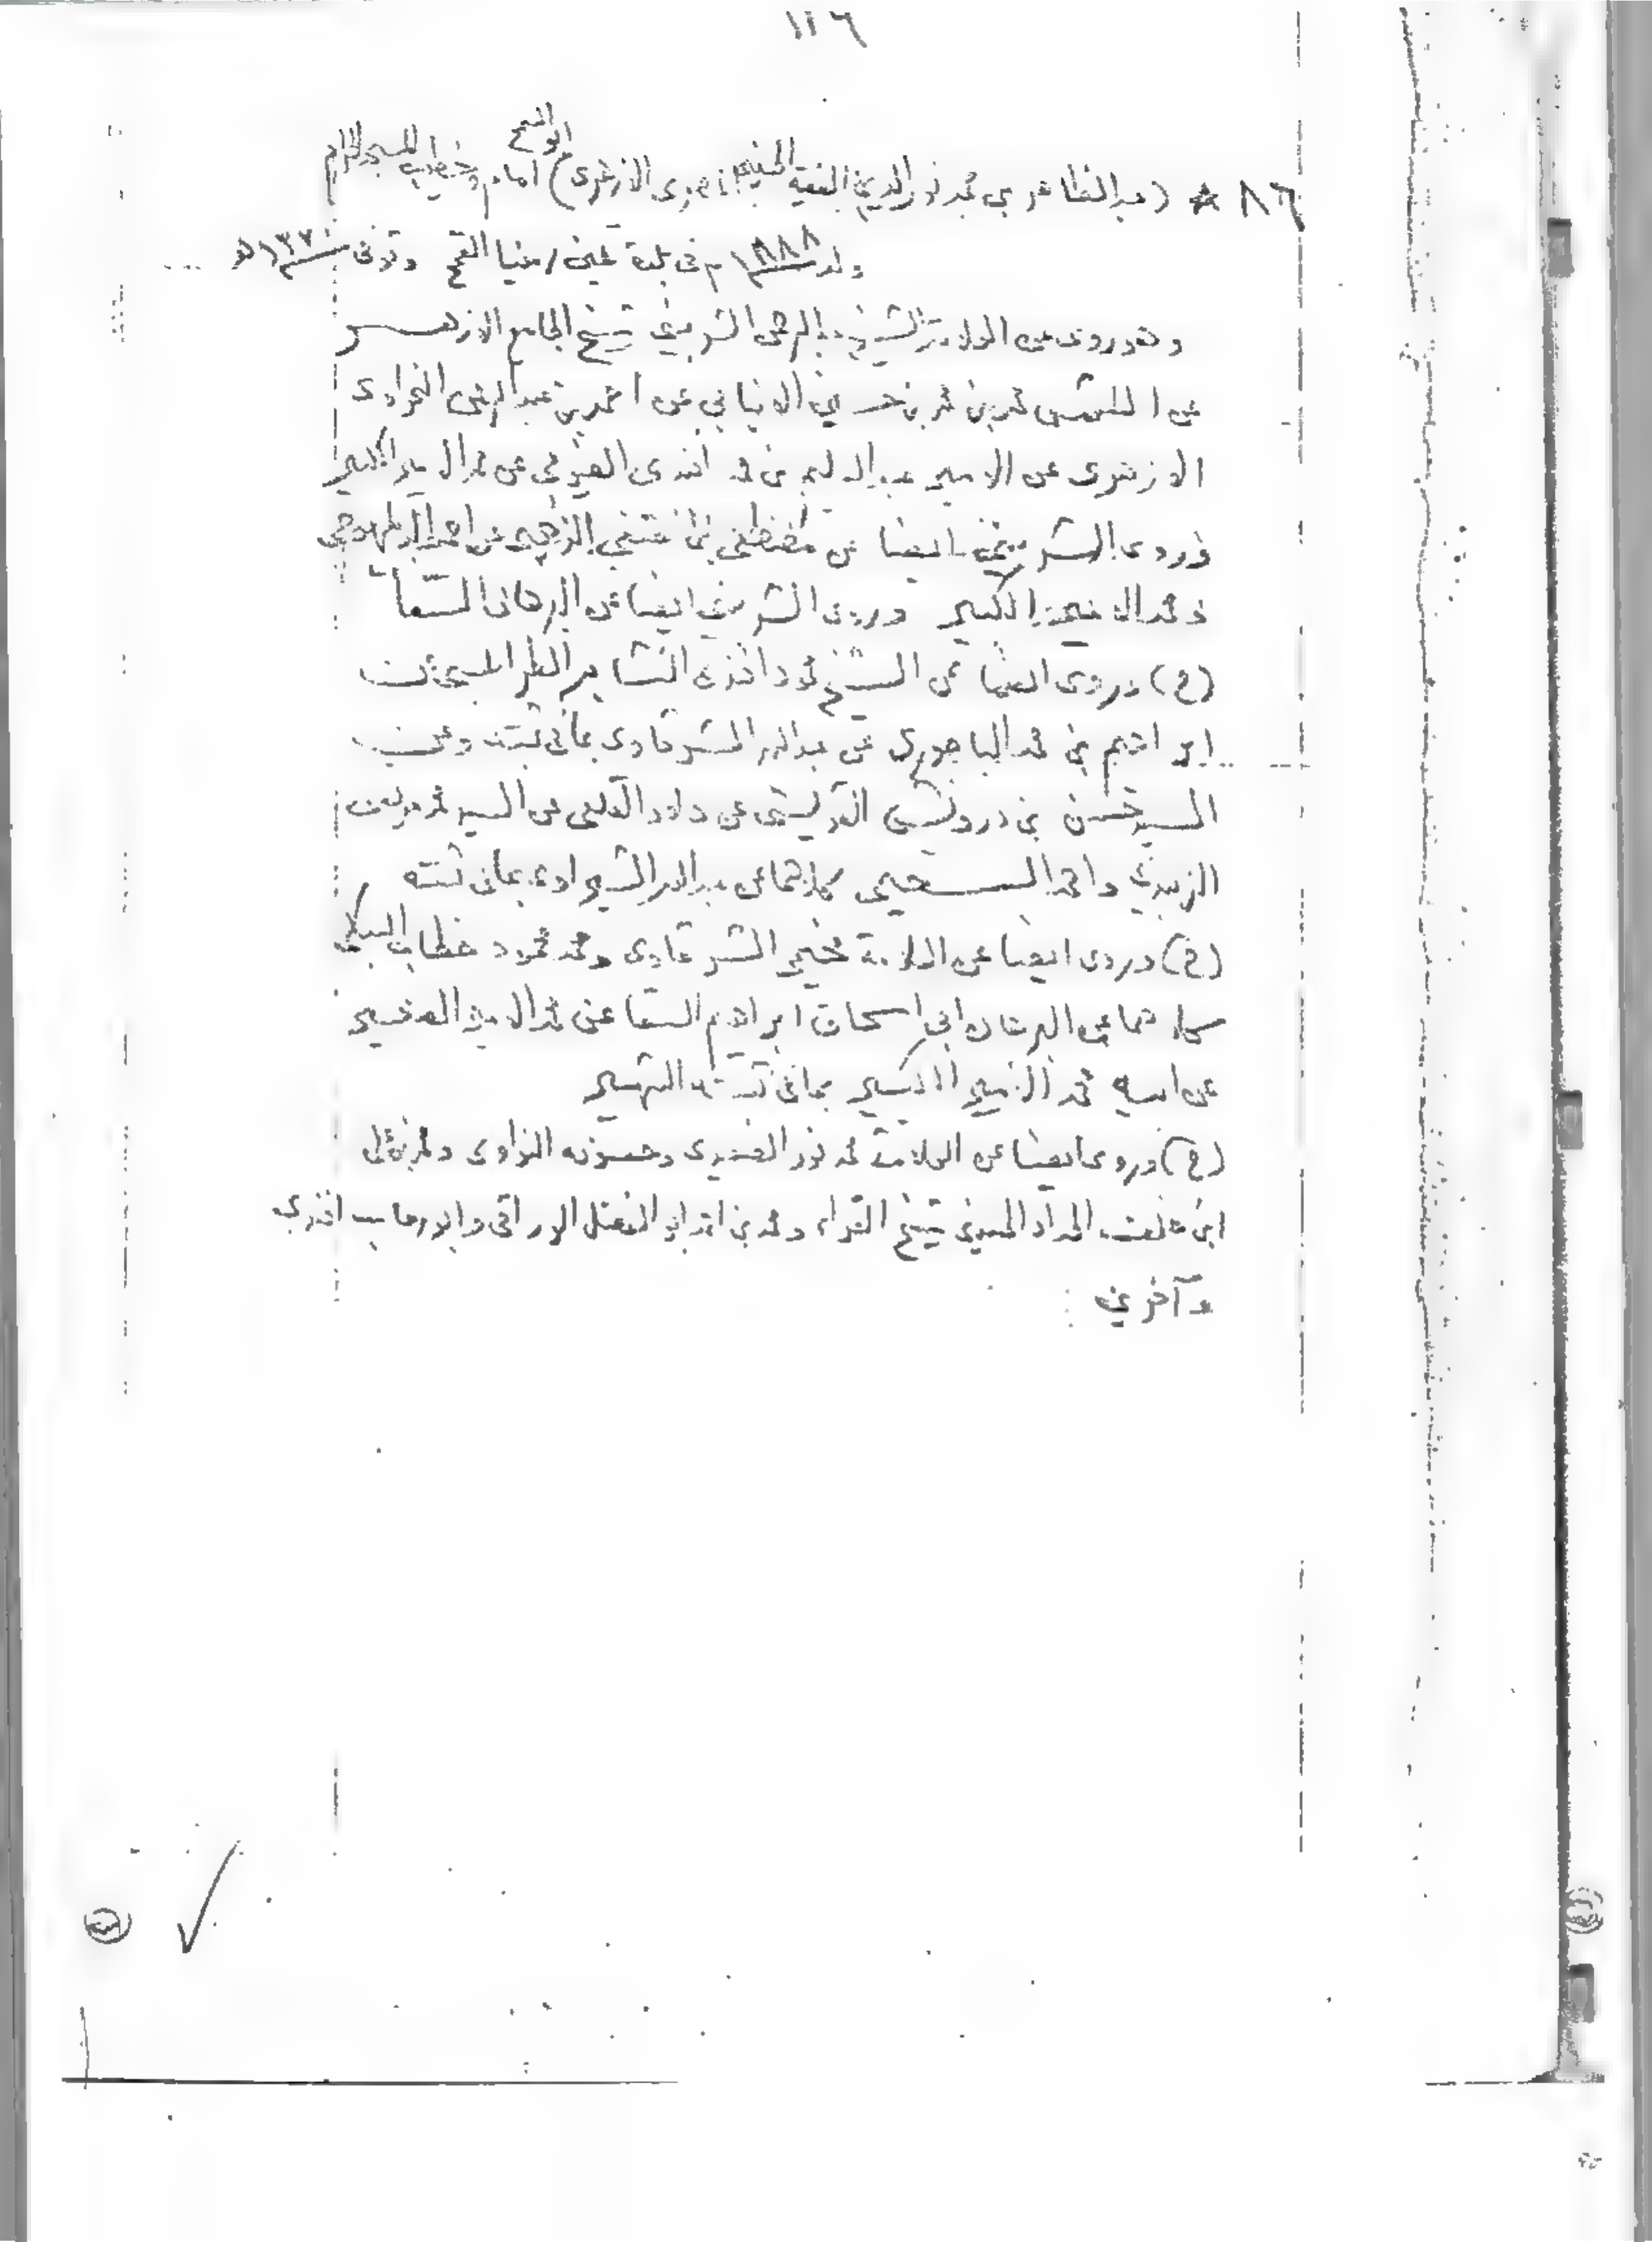 ١٢٦
٨٦ * (عبد الظاهر بن محمد نور الدين الفقيه المصرى الازهرى) ابو السمح امام وخطيب المسجد الحرام
ولد ١٨٨٨ م فى بلدة تلين / منيا القمح وتوفى ١٣٧٠ هـ
وقد روى عن العلامة الشيخ عبد الرحمن الشربينى شيخ الجامع الازهر
عن الشمس محمد بن محمد بن حسين الانبابى عن احمد بن عبد الرحمن النحراوى
الازهرى عن الامير عبد العليم بن محمد افندى الفيومى عن محمد الامير الكبير
وروى الشربينى ايضا عن مصطفى الذهبى عن احمد الدمهوجى
ومحمد الامير الكبير وروى الشربينى ايضا عن البرهان السقا
(ح) وروى ايضا عن الشيخ محمود افندى عن
ابراهيم بن محمد الباجورى عن عبد الله الشرقاوى بما فى ثبته وعن
السيد حسن بن درويش القويسنى عن داود القلعى عن السيد محمد مرتضى
الزبيدى واحمد السحيمى كلاهما عن عبد الله الشبراوى بما فى ثبته
(ح) وروى ايضا عن العلامة الشرقاوى ومحمد محمود خطاب السبكى
كلاهما عن البرهان ابى اسحاق ابراهيم السقا عن محمد الامير الصغير
عن ابيه محمد الامير الكبير بما فى ثبته الشهير
(ح) وروى ايضا عن العلامة محمد نور وحسونه النواوى ومحمد بن على
ابن خلف الحداد الحسينى شيخ القراء ومحمد بن احمد ابو الفضل الوراقى افندى
وآخرين